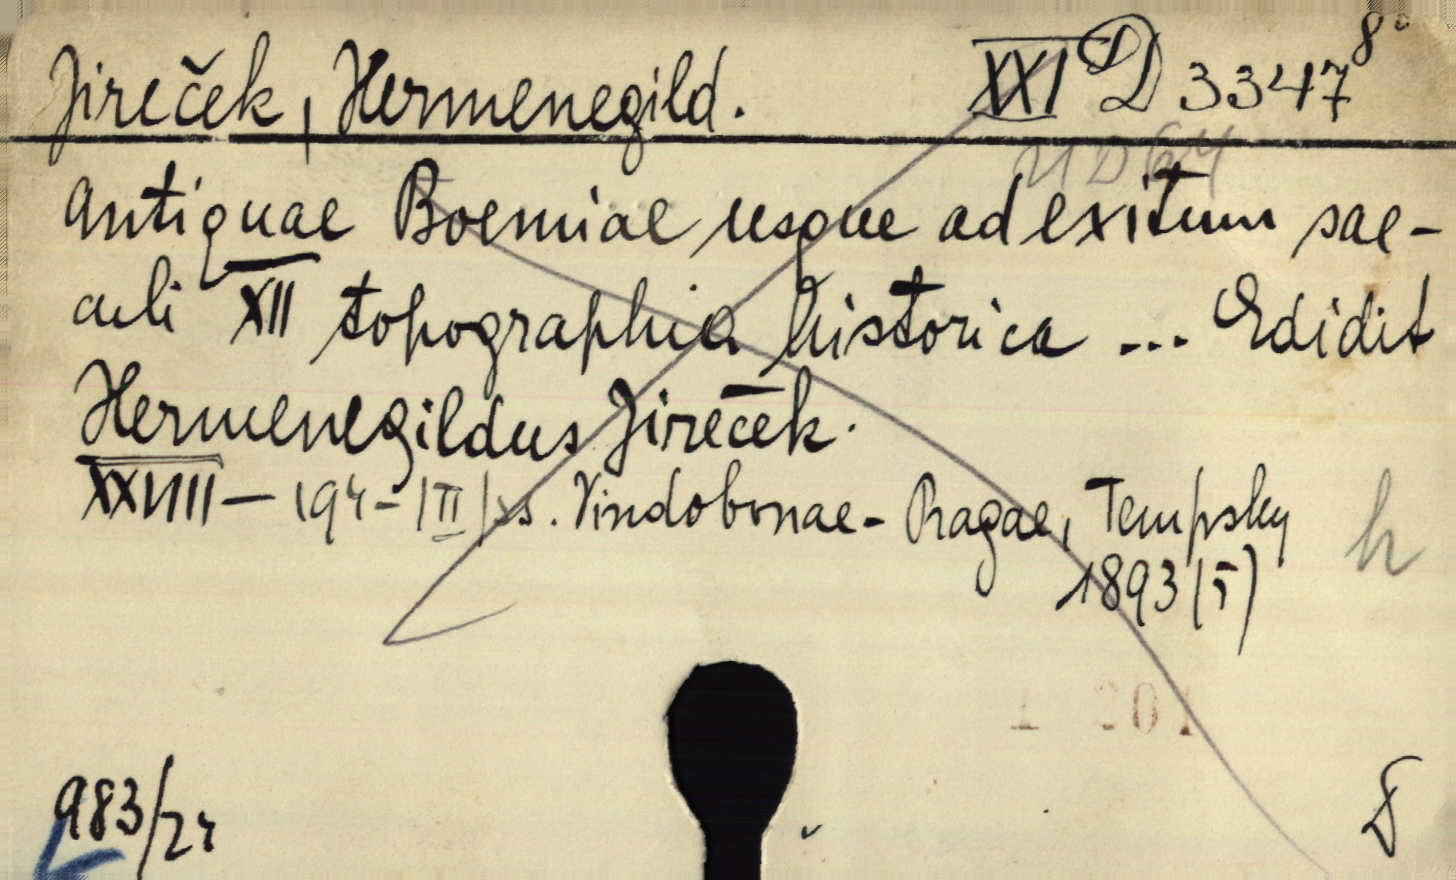 Jireček, Hermenegild. XXI D 3347 8°
Antiquae Boemiae usque ad exitum sae-
culi XII topographia historica ... Edidit
Hermenegildus Jireček.
XXVIIII – 194 – |II| ss. Vindobonae – Pragae, Tempsky
1893 (5)
h
983/24